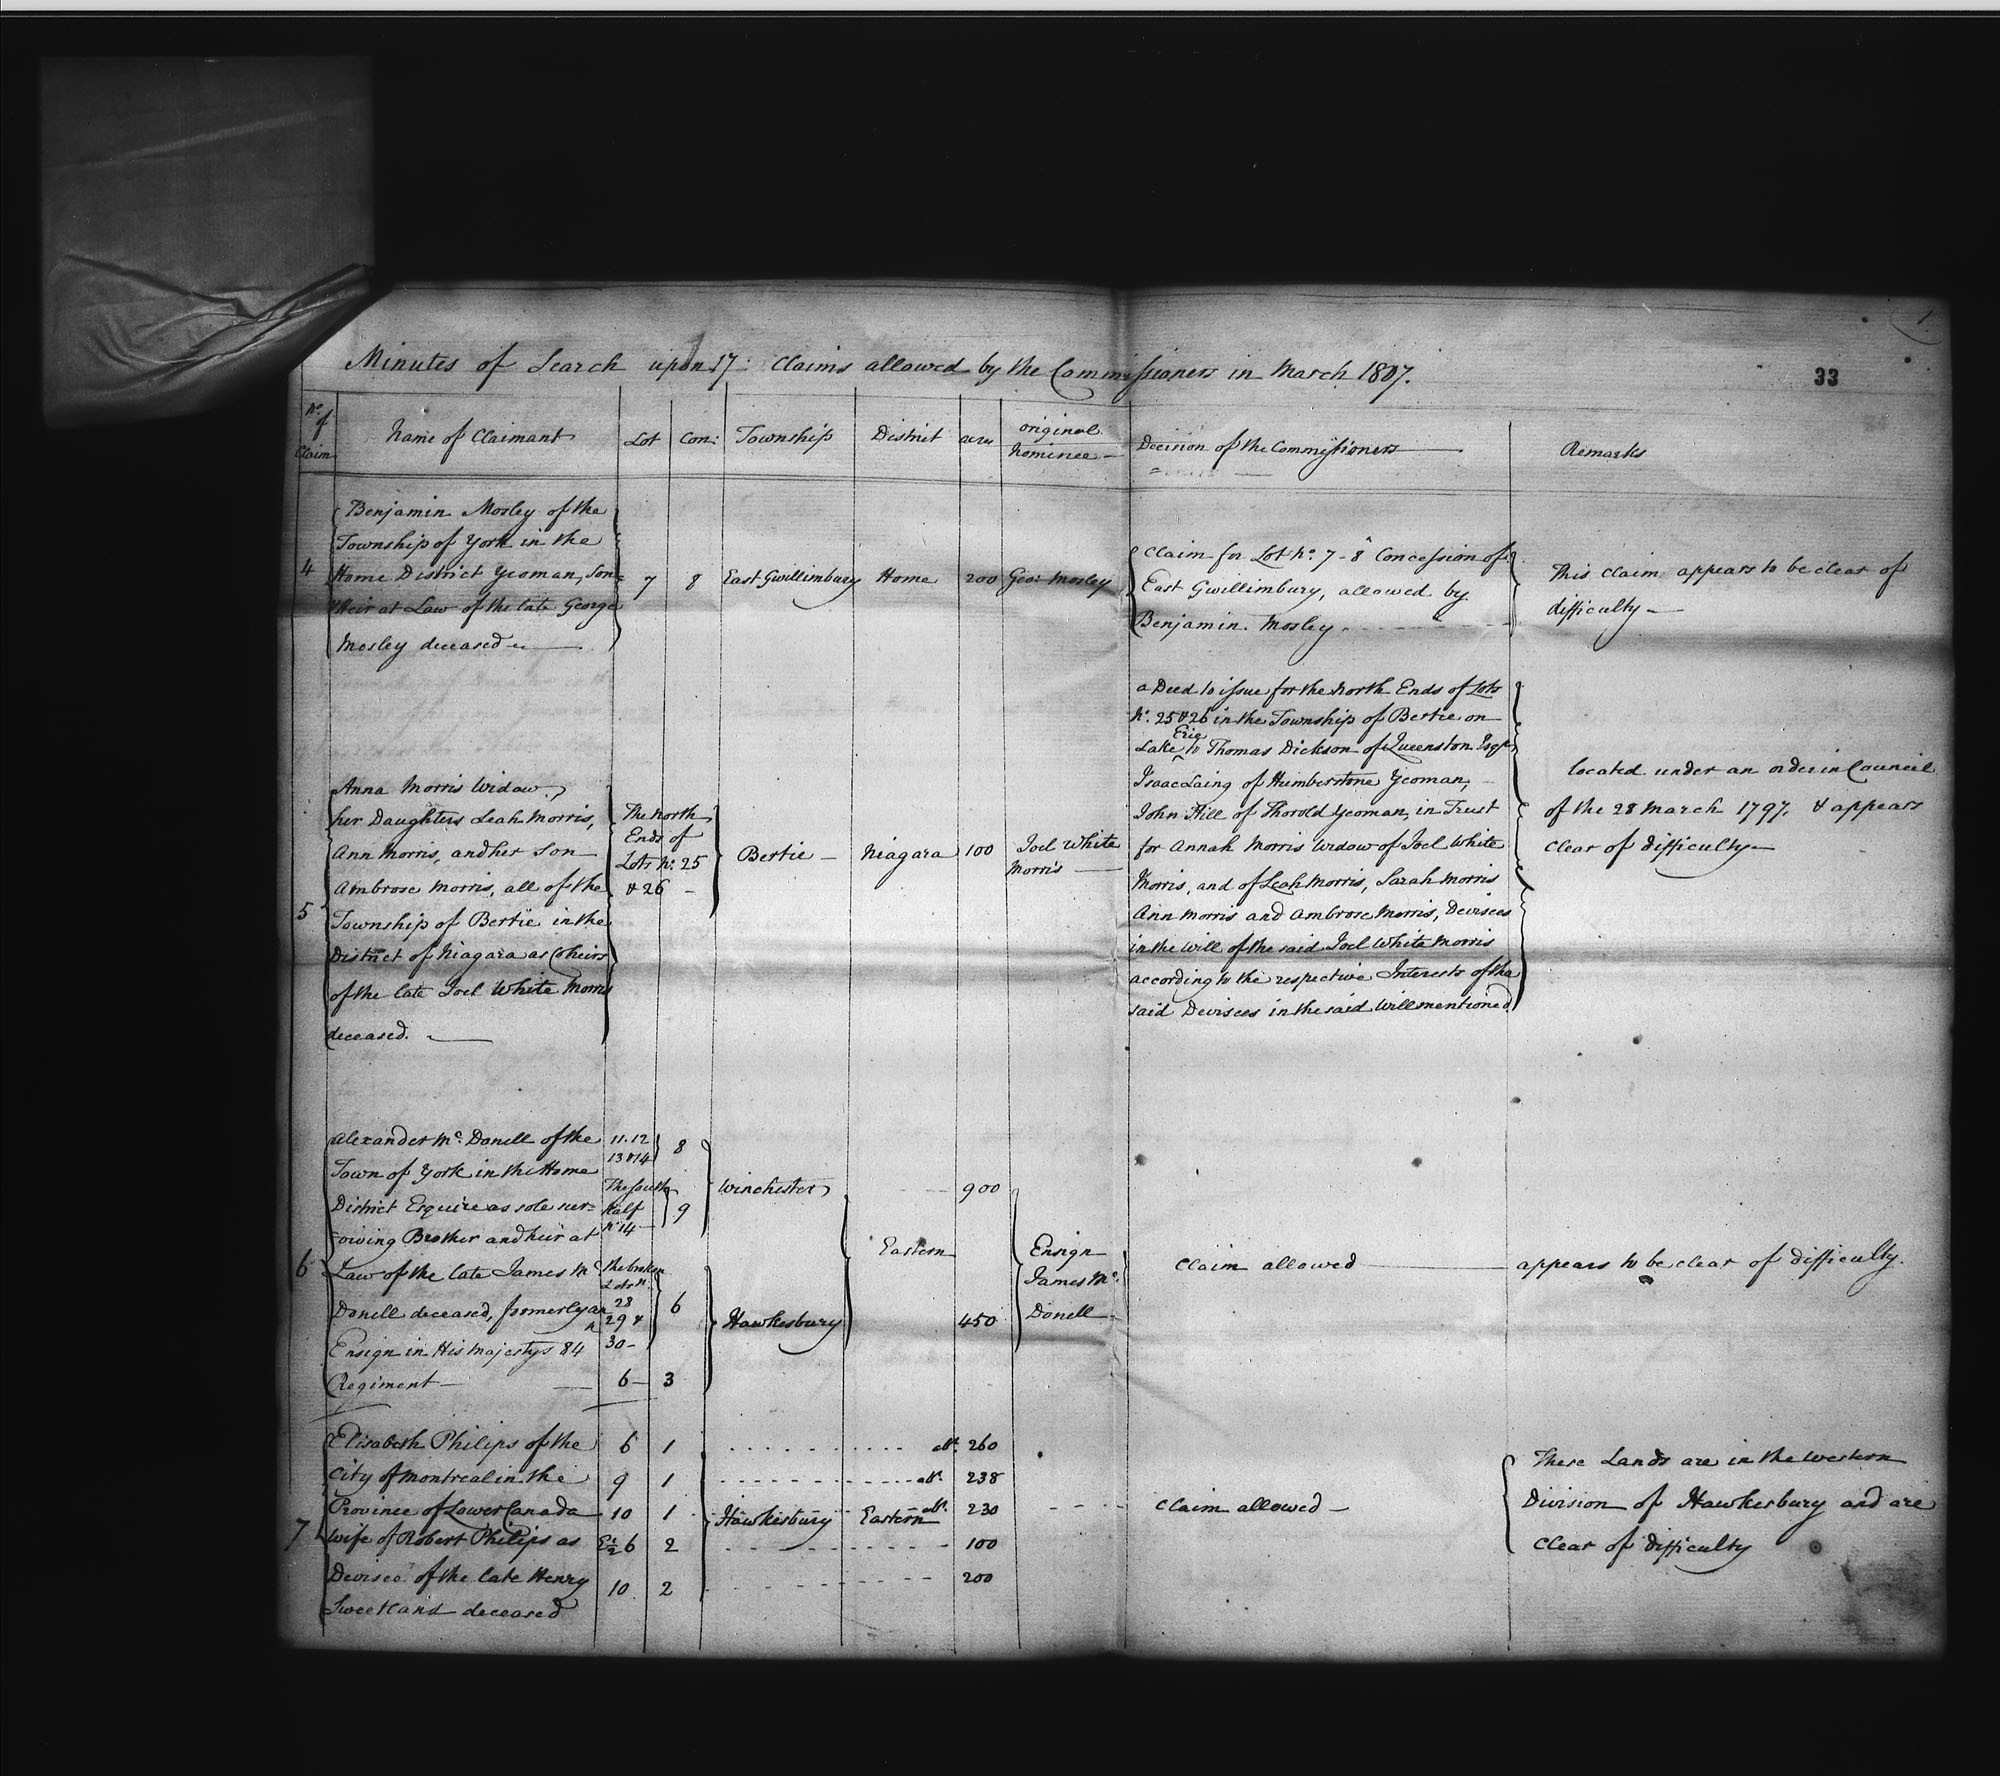 Minutes of Search upon 17 Claims allowed by the Commissioners in March 1807.
33
No. of Claim
Name of Claimant
Lot
Con:
Township
District
acres
original Nominee
Decision of the Commissioners
Remarks
4
Benjamin Mosley of the
Township of York in the
Home District Yeoman, Son
Heir at Law of the late George
Mosley deceased
7
8
East Gwillimbury
Home
200
Geo: Mosley
Claim for Lot No. 7 - 8 Concession of
East Gwillimbury, allowed by
Benjamin Mosley
This Claim appears to be clear of
difficulty
5
Anna Morris Widow,
her Daughters Leah Morris,
Ann Morris, and her Son
Ambrose Morris, all of the
Township of Bertie in the
District of Niagara as Coheirs
of the late Joel White Morris
deceased.
The North
Ends of
Lots No. 25
& 26
Bertie
Niagara
100
Joel White
Morris
a Deed to issue for the North Ends of Lots
No. 25 & 26 in the Township of Bertie on
Lake Erie to Thomas Dickson of Queenston Esqr.
Isaac Laing of Humberstone Yeoman,
John Hill of Thorold Yeoman, in Trust
for Annah Morris Widow of Joel White
Morris, and of Leah Morris, Sarah Morris
Ann Morris and Ambrose Morris, Devisees
in the Will of the said Joel White Morris
according to the respective Interests of the
said Devisees in the said Will mentioned.
located under an order in Council
of the 28 March 1797. & appears
clear of difficulty
6
Alexander Mc. Donell of the
Town of York in the Home
District Esquire as sole sur=
=viving Brother and heir at
Law of the late James Mc
Donell deceased, formerly an
Ensign in His Majestys 84
Regiment
11. 12
13 & 14
8
The South
half
No 14
9
The broken
Lots No.
28
29 &
30
6
6
3
Winchester
Hawkesbury
Eastern
900
450
Ensign
James Mc.
Donell
Claim allowed
appears to be clear of difficulty.
7
Elisabeth Philips of the
City of Montreal in the
Province of Lower Canada
Wife of Robert Philips as
Devisee of the late Henry
Sweetland deceased
6 1 abt. 260
9 1 abt. 238
10 1 Hawkesbury Eastern abt. 230
E 1/2 6 2 100
10 2 200
Claim allowed
These Lands are in the Western
Division of Hawkesbury and are
clear of difficulty